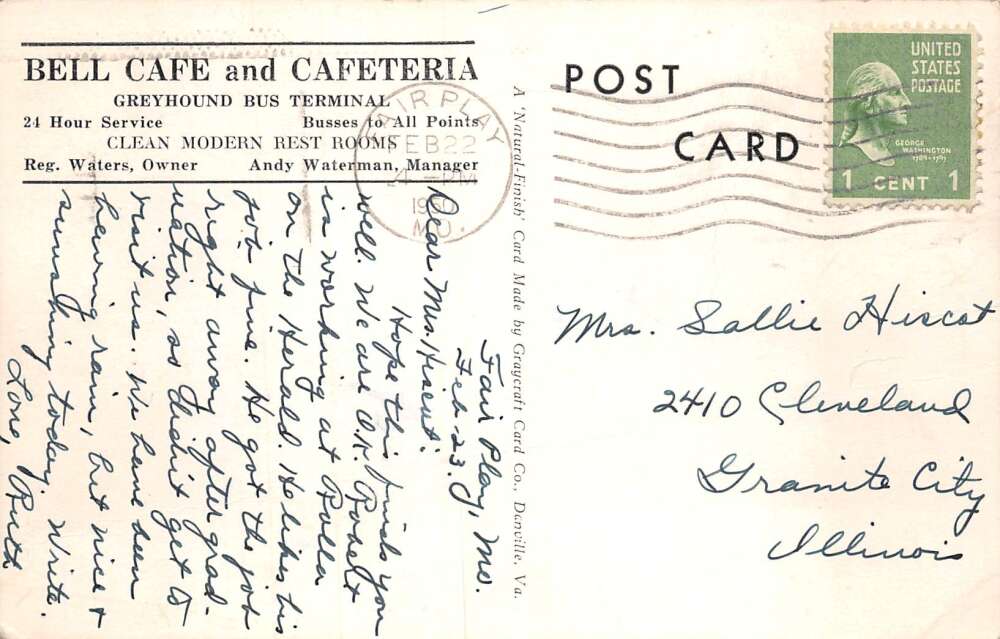 BELL CAFE and CAFETERIA
GREYHOUND BUS TERMINAL
24 Hour Service Busses to All Points
CLEAN MODERN REST ROOMS
Reg. Waters, Owner Andy Waterman, Manager
Fair Play, Mo.
Feb-23.
Dear Mrs. Hiscot:
Hope this finds you
well. We are O.K.
is working at Rolla
on the Herald. He likes his
job fine. He got the job
right away after grad-
uation, so didn't get to
visit us. We have been
having rain, but nice &
sunshing today. Write.
Love, Ruth
A 'Natural-Finish' Card Made by Graycraft Card Co., Danville, Va.
POST
CARD
FAIR PLAY
FEB 22
PM
1950
MO.
UNITED
STATES
POSTAGE
GEORGE
WASHINGTON
1789-1797
1 CENT 1
Mrs. Sallie Hiscot
2410 Cleveland
Granite City
Illinois